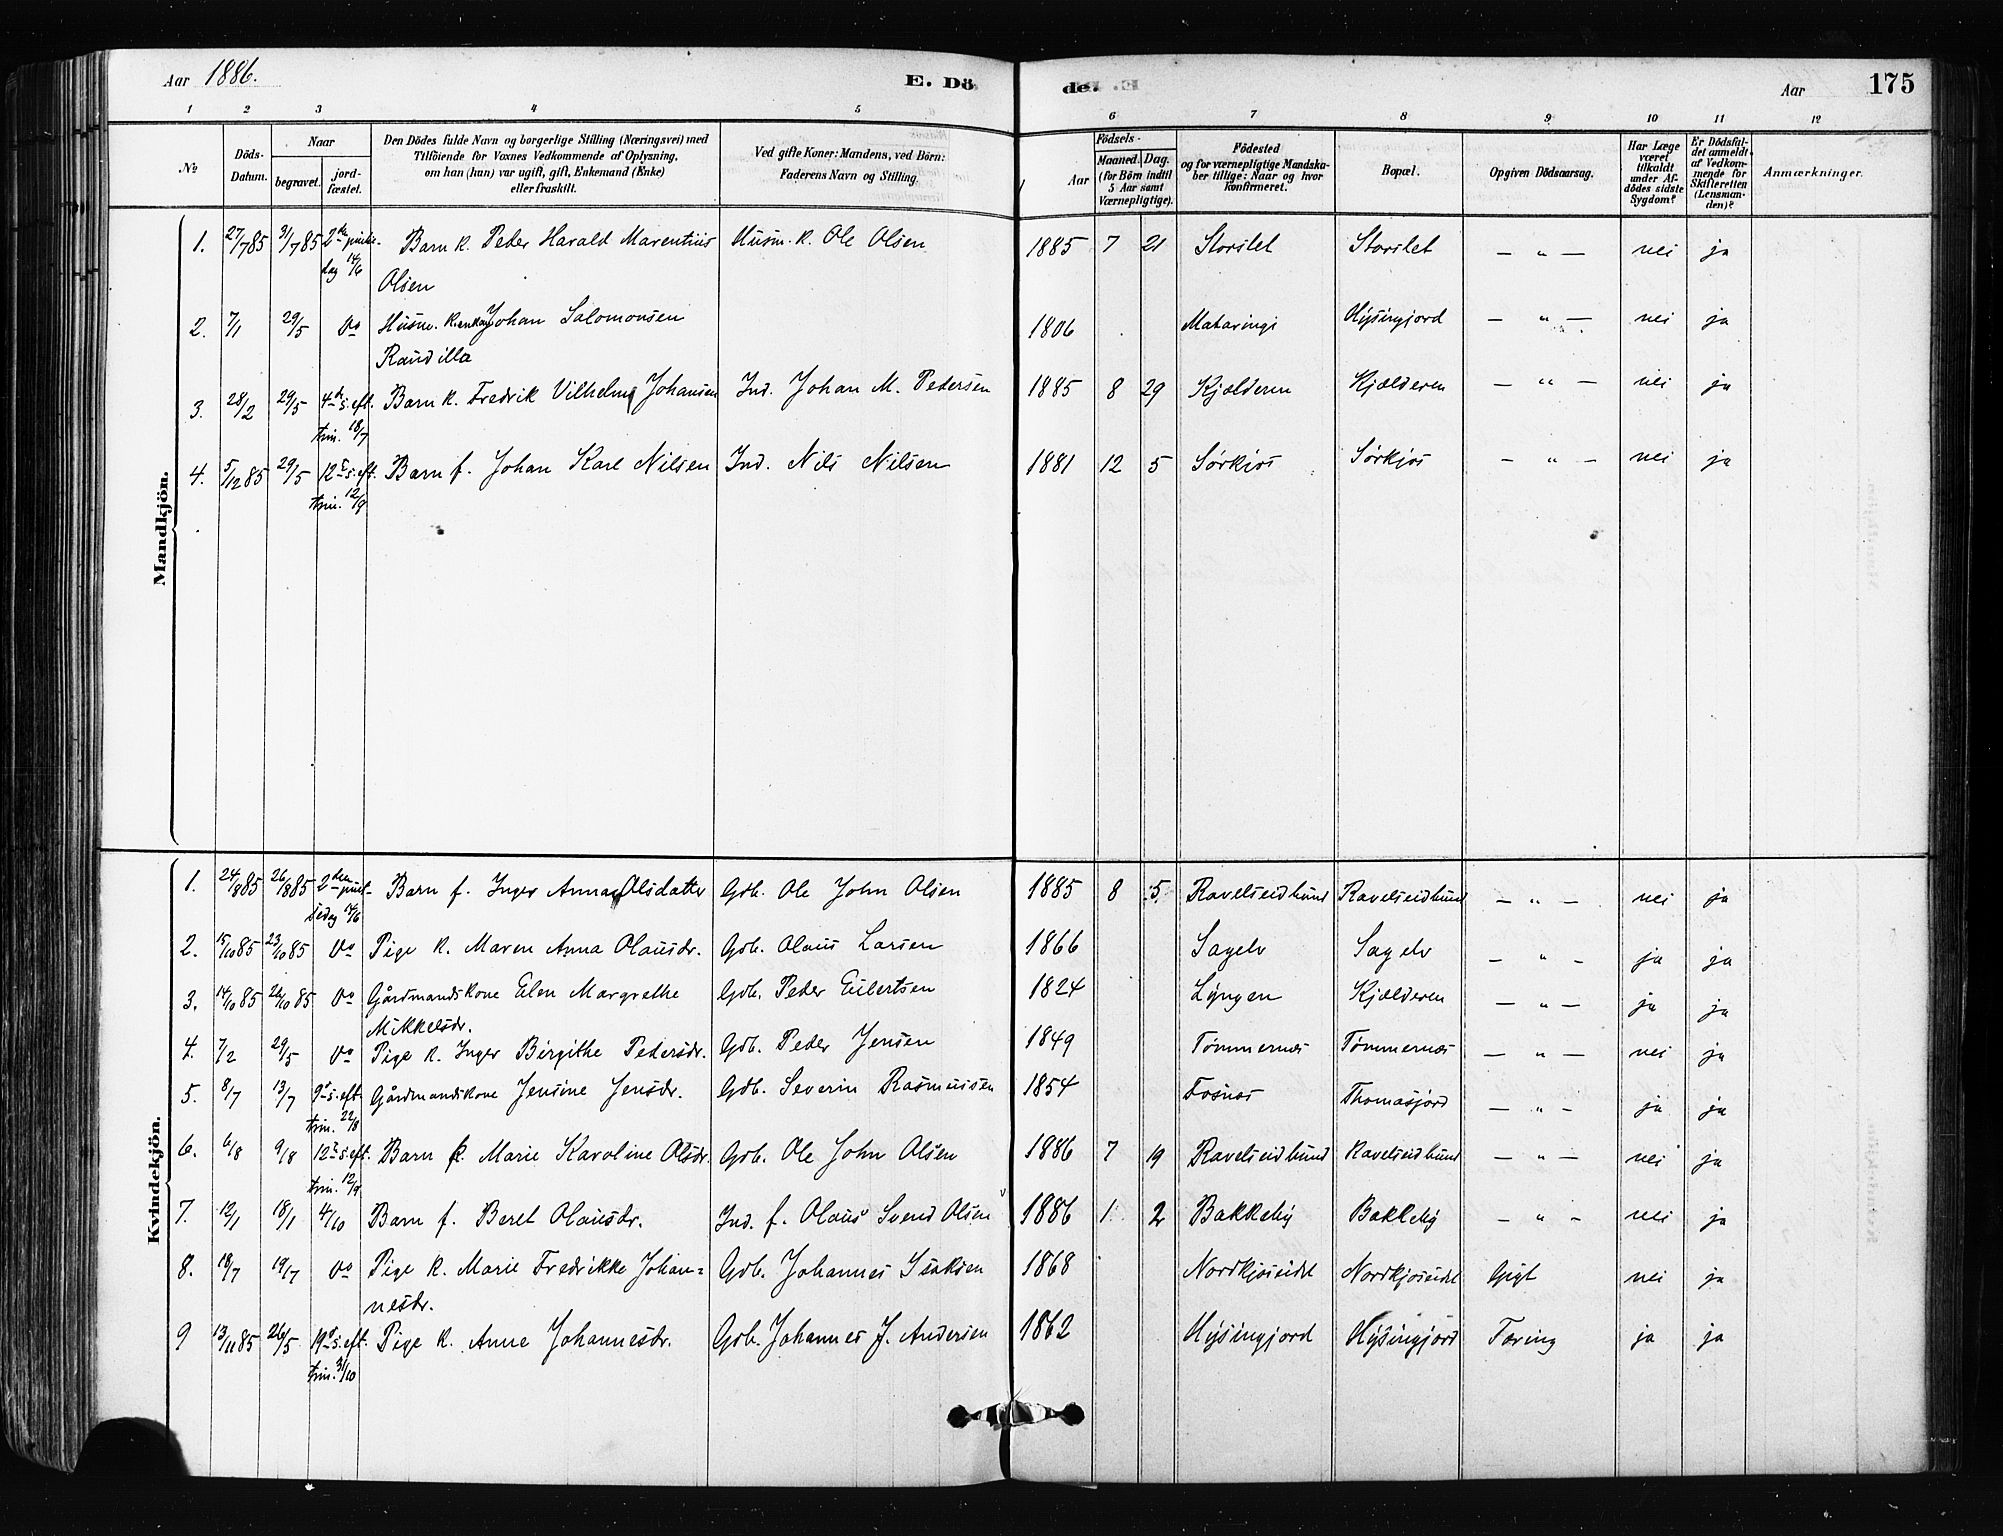 Aar 1886. E. Dö de. Aar 175
1 2 3 4 5 6 7 8 9 10 11 12
No
Döds-Datum.
Naar
begravet.
jord-fæstet.
Den Dödes fulde Navn og borgerlige Stilling (Næringsvei) med
Tilföiende for Voxnes Vedkommende af Oplysning,
om han (hun) var ugift, gift, Enkemand (Enke)
eller fraskilt.
Ved gifte Koner: Mandens, ved Börn:
Faderens Navn og Stilling.
Födsels-
Aar
Maaned. Dag.
(for Börn indtil
5 Aar samt
Værnepligtige).
Födested
og for værnepligtige Mandska-
ber tillige: Naar og hvor
konfirmeret.
Bopæl.
Opgiven Dödsaarsag.
Har Læge
været
tilkaldt
under Af-
dödes sidste
Sygdom?
Er Dödsfal-
det anmeldt
af Vedkom-
mende for
Skifteretten
(Lensman-
den)?
Anmærkninger.
Mandkjön.
1. 27/7 85 31/7 85 2den pintse- Barn k. Peder Harald Marentius Husm. k. Ole Olsen 1885 7 21 Storslet Storslet — " — nei ja
dag 14/6 Olsen
2. 7/1 29/5 Do Husm. k. enkem. Johan Salomonsen 1806 Mataringi Hysingjord — " — nei ja
Raudilla
3. 28/2 29/5 4de s. eft. Barn k. Fredrik Vilhelm Johansen Ind. Johan M. Pedersen 1885 8 29 Kjælderen Kjælderen — " — nei ja
trin. 18/7
4. 5/12 85 29/5 12te s. eft. Barn f. Johan Karl Nilsen Ind. Nils Nilsen 1881 12 5 Sørkjos Sørkjos — " — nei ja
trin. 12/9
Kvindekjön.
1. 24/8 85 26/8 85 2den pint- Barn f. Inger Anna Olsdatter Gdb. Ole John Olsen 1885 8 5 Ravelseidbund Ravelseidbund — " — nei ja
sedag 14/6
2. 15/10 85 23/10 85 Do Pige k. Maren Anna Olausdr. Gdb. Olaus Larsen 1866 Sagelv Sagelv — " — ja ja
3. 14/10 85 26/10 85 Do Gårdmandskone Elen Margrethe Gdb. Peder Eilertsen 1824 Lyngen Kjælderen — " — ja ja
Mikkelsdr.
4. 7/2 29/5 Do Pige k. Inger Birgithe Pedersdr. Gdb. Peder Jensen 1849 Tømmernes Tømmernes — " — nei ja
5. 8/7 13/7 9de s. eft. Gårdmandskone Jensine Jensdr. Gdb. Severin Rasmussen 1854 Fosnes Thomasjord — " — ja ja
trin. 22/8
6. 6/8 9/8 12te s. eft. Barn k. Marie Karoline Olsdr. Gdb. Ole John Olsen 1886 7 19 Ravelseidbund Ravelseidbund — " — nei ja
trin. 12/9
7. 12/1 18/1 4/10 Barn f. Beret Olausdr. Ind. f. Olaus Svend Olsen 1886 1 2 Bakkeby Bakkeby — " — nei ja
8. 18/7 19/7 Do Pige k. Marie Fredrikke Johan= Gdb. Johannes Isaksen 1868 Nordkjoseidet Nordkjoseidet Gigt nei ja
nesdr.
9 13/11 85 26/5 19de s. eft. Pige k. Anne Johannesdr. Gdb. Johannes J. Andersen 1862 Hysingjord Hysingjord Tæring ja ja
trin. 31/10